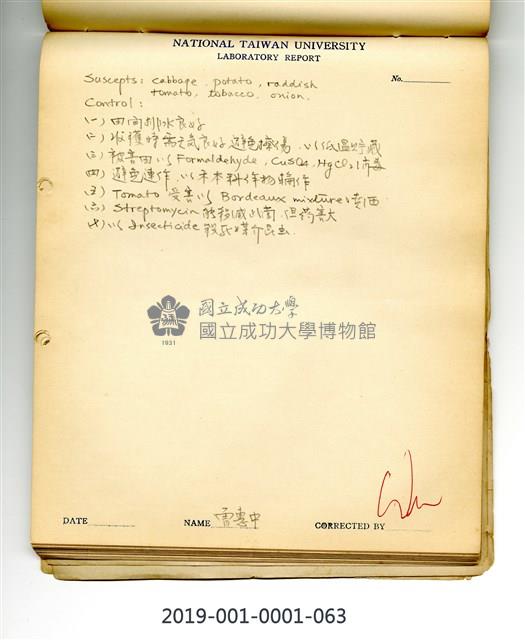 NATIONAL TAIWAN UNIVERSITY
LABORATORY REPORT
No.
Suscepts: cabbage, potato, raddish
tomato, tobacco, onion.
Control:
(一) 田間排水良好
(二) 收穫時需天氣良好避免擦傷，以低溫貯藏
(三) 被害田以 Formaldehyde, CuSO4, HgCl2 消毒
(四) 避免連作，以禾本科作物輪作
(五) Tomato 受害以 Bordeaux mixture
(六) Streptomycin 能殺滅此菌，但药害大
(七) 以 Insecticide 殺死媒介昆虫.
國立成功大學
國立成功大學博物館
1931
DATE
NAME 曾憲中
CORRECTED BY
2019-001-0001-063